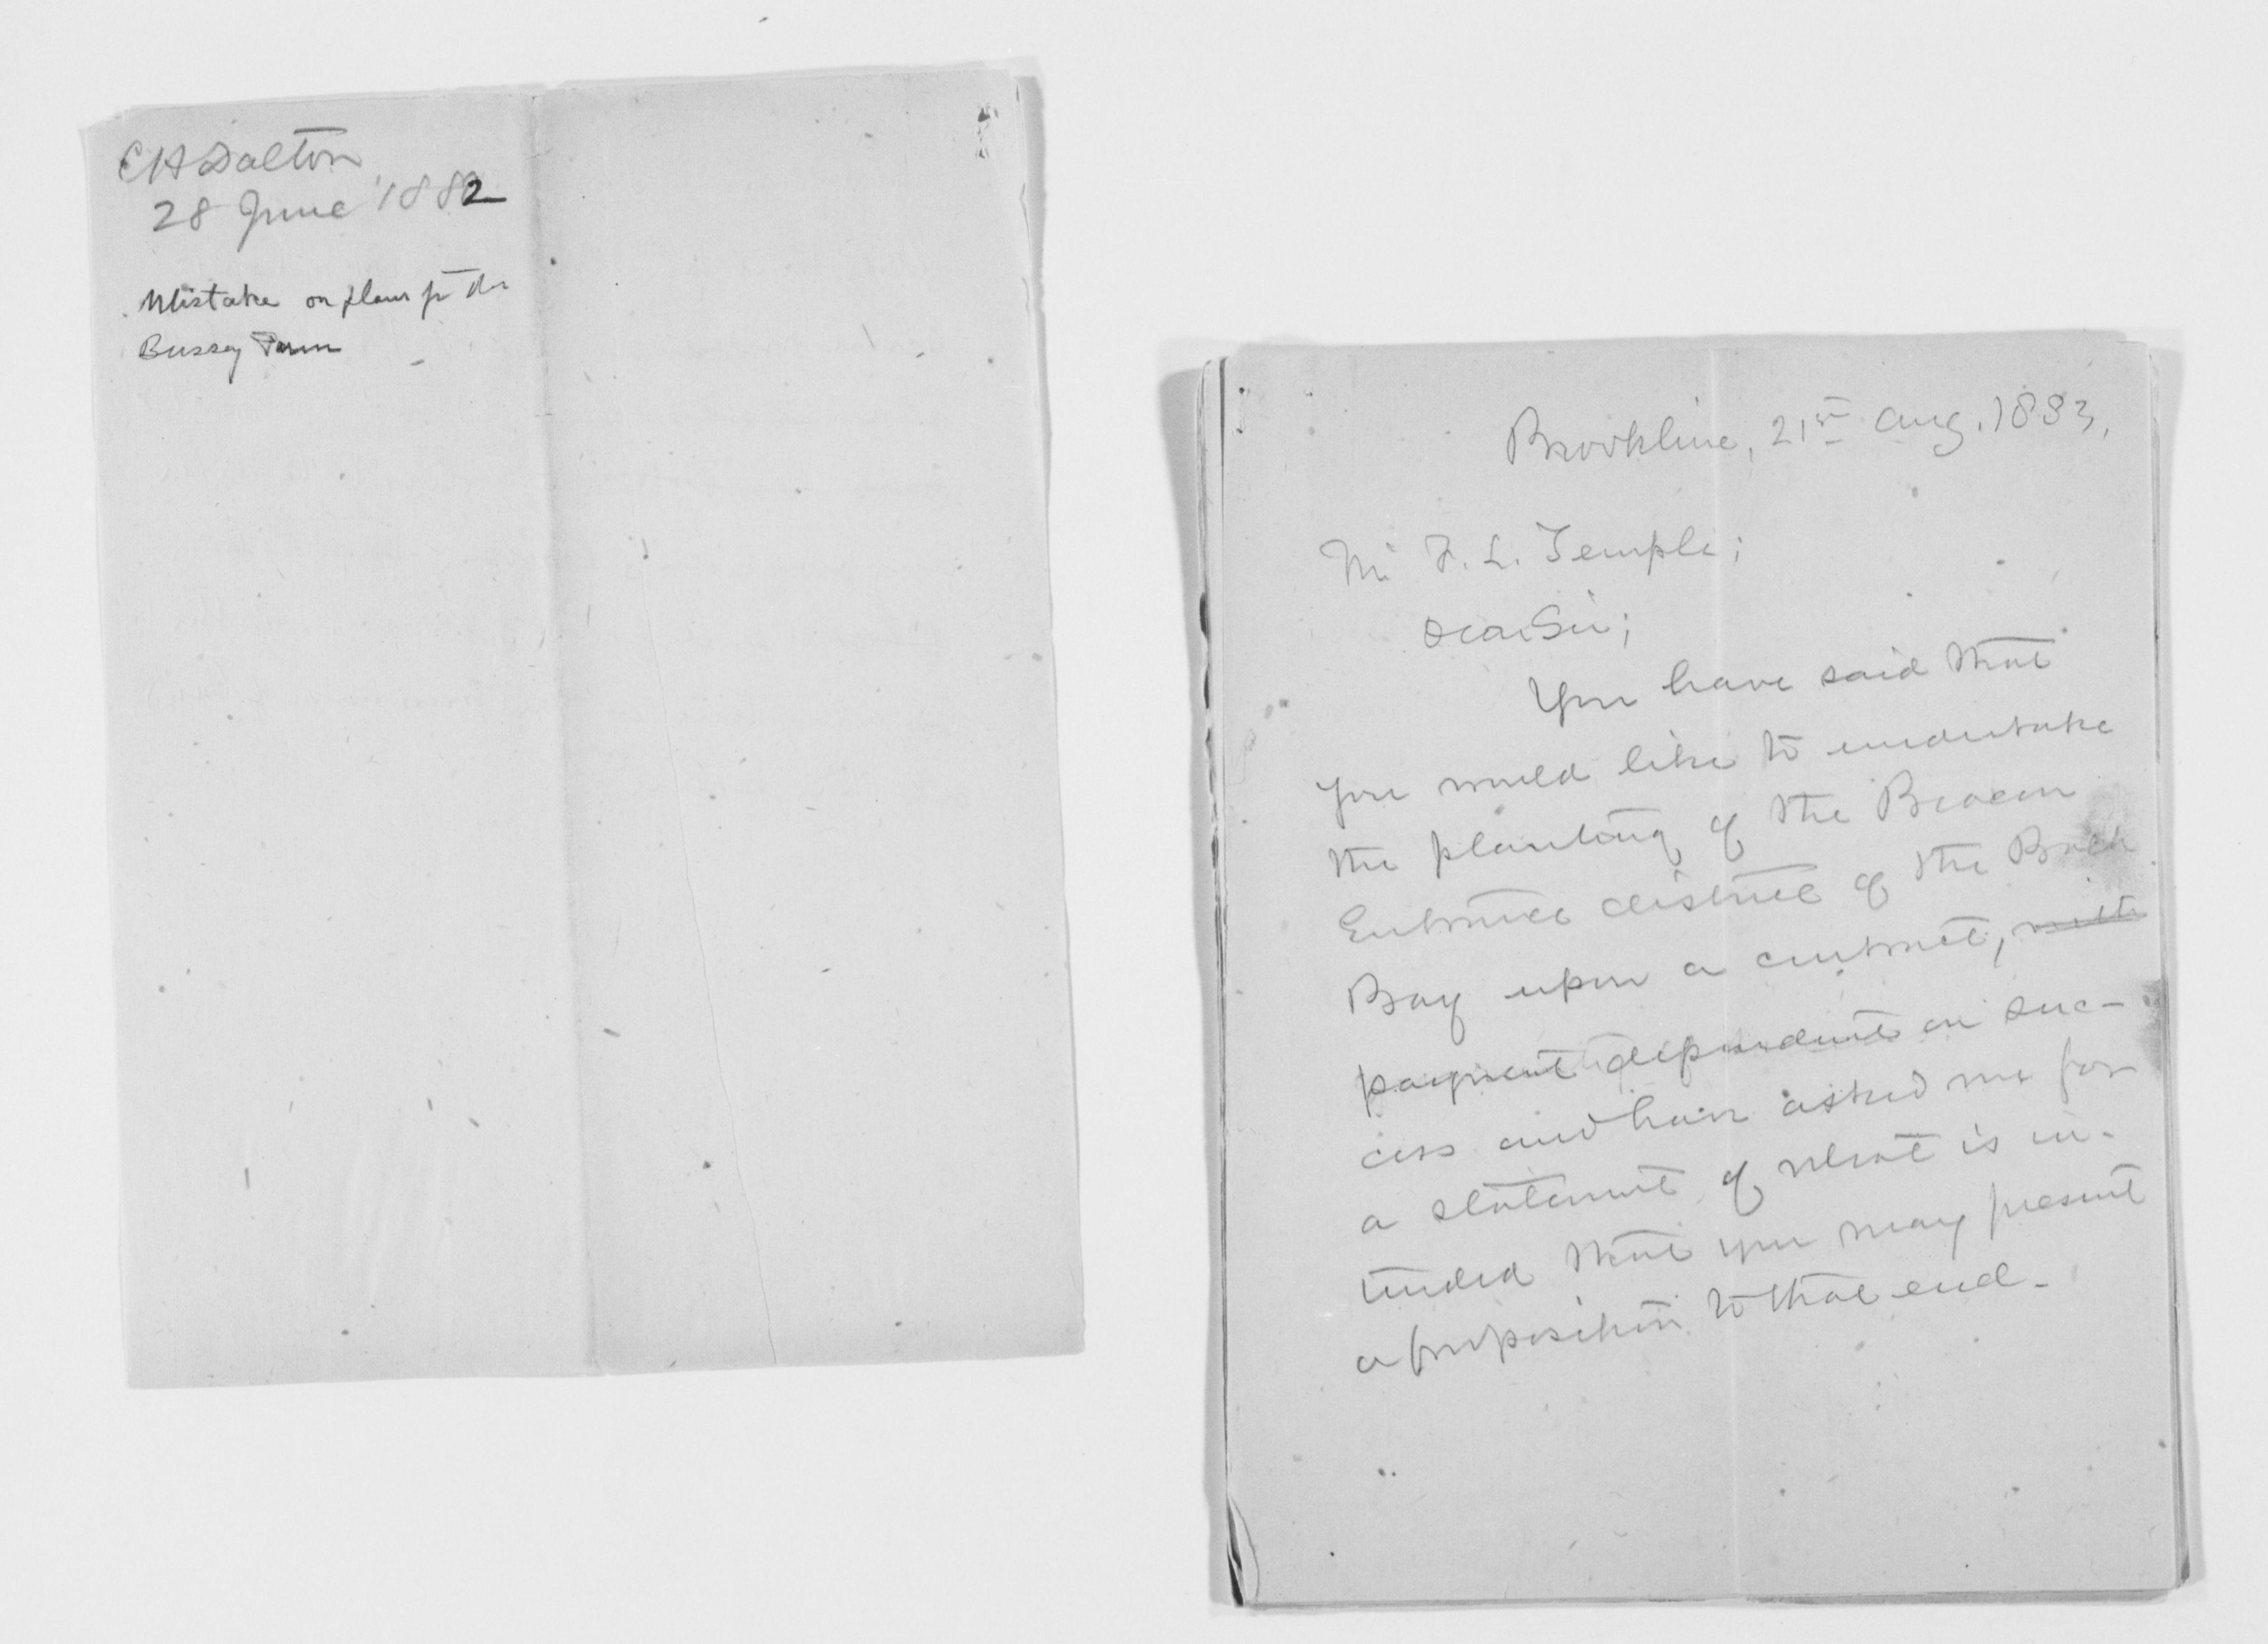 C H Dalton
28 June 1882
Mistake on plans for the
Bussey Farm
Brookline, 21st Aug. 1883,
Mr F. L. Temple;
Dear Sir;
You have said that
you would like to undertake
the planting of the Beacon
Entrance district of the Back
Bay upon a contract, with
payment dependent on suc-
cess and have asked me for
a statement of what is in-
tended that you may present
a proposition to that end.